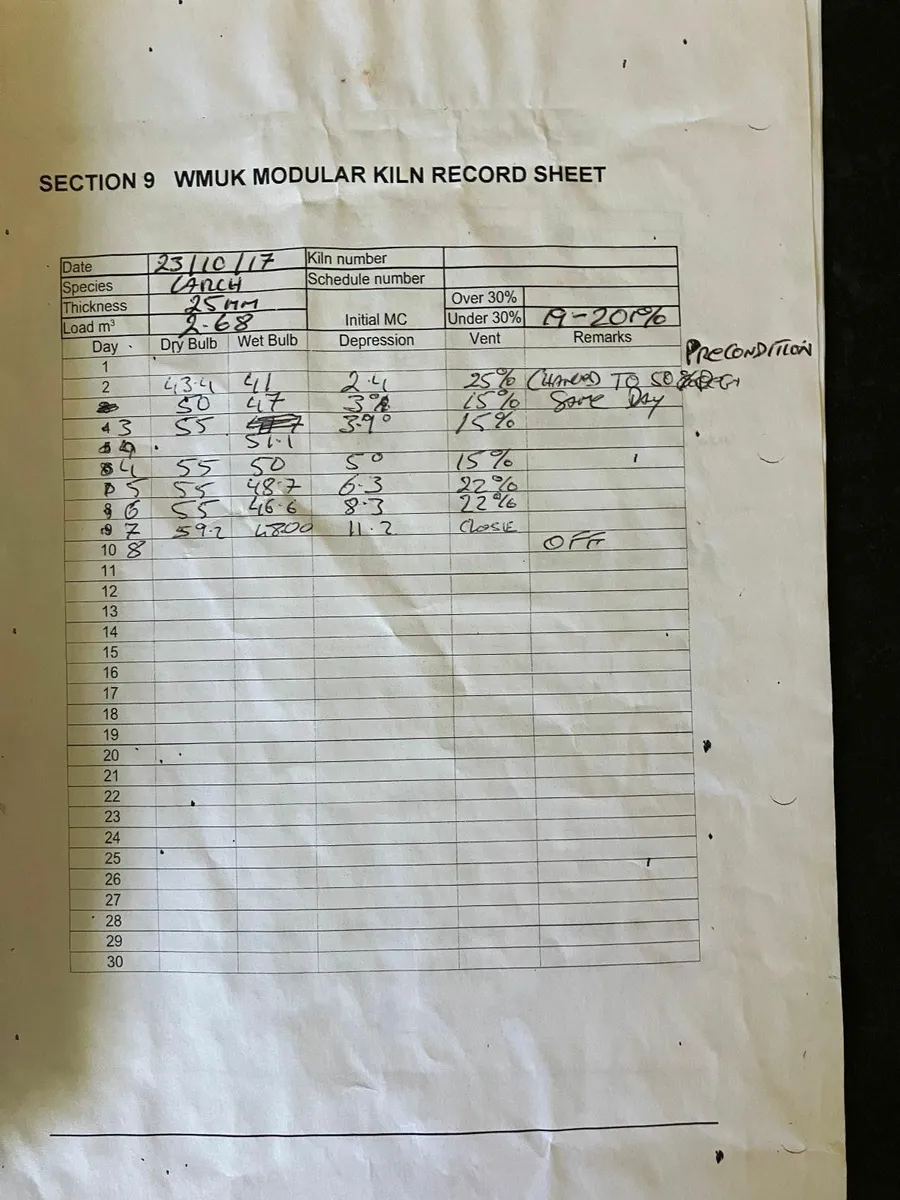 SECTION 9 WMUK MODULAR KILN RECORD SHEET
Date 23/10/17 Kiln number
Species LARCH Schedule number
Thickness 25MM Over 30%
Load m³ 2.68 Initial MC Under 30% 19-20%
Day Dry Bulb Wet Bulb Depression Vent Remarks
PRECONDITION
1
2 43.4 41 2.4 25% CHANGED TO 50
50 47 3° 15% SAME DAY
4 3 55 3.9° 15%
51.1
4 55 50 5° 15%
5 55 48.7 6.3 22%
6 55 46.6 8.3 22%
7 59.2 48.00 11.2 CLOSE
10 8 OFF
11
12
13
14
15
16
17
18
19
20
21
22
23
24
25
26
27
28
29
30